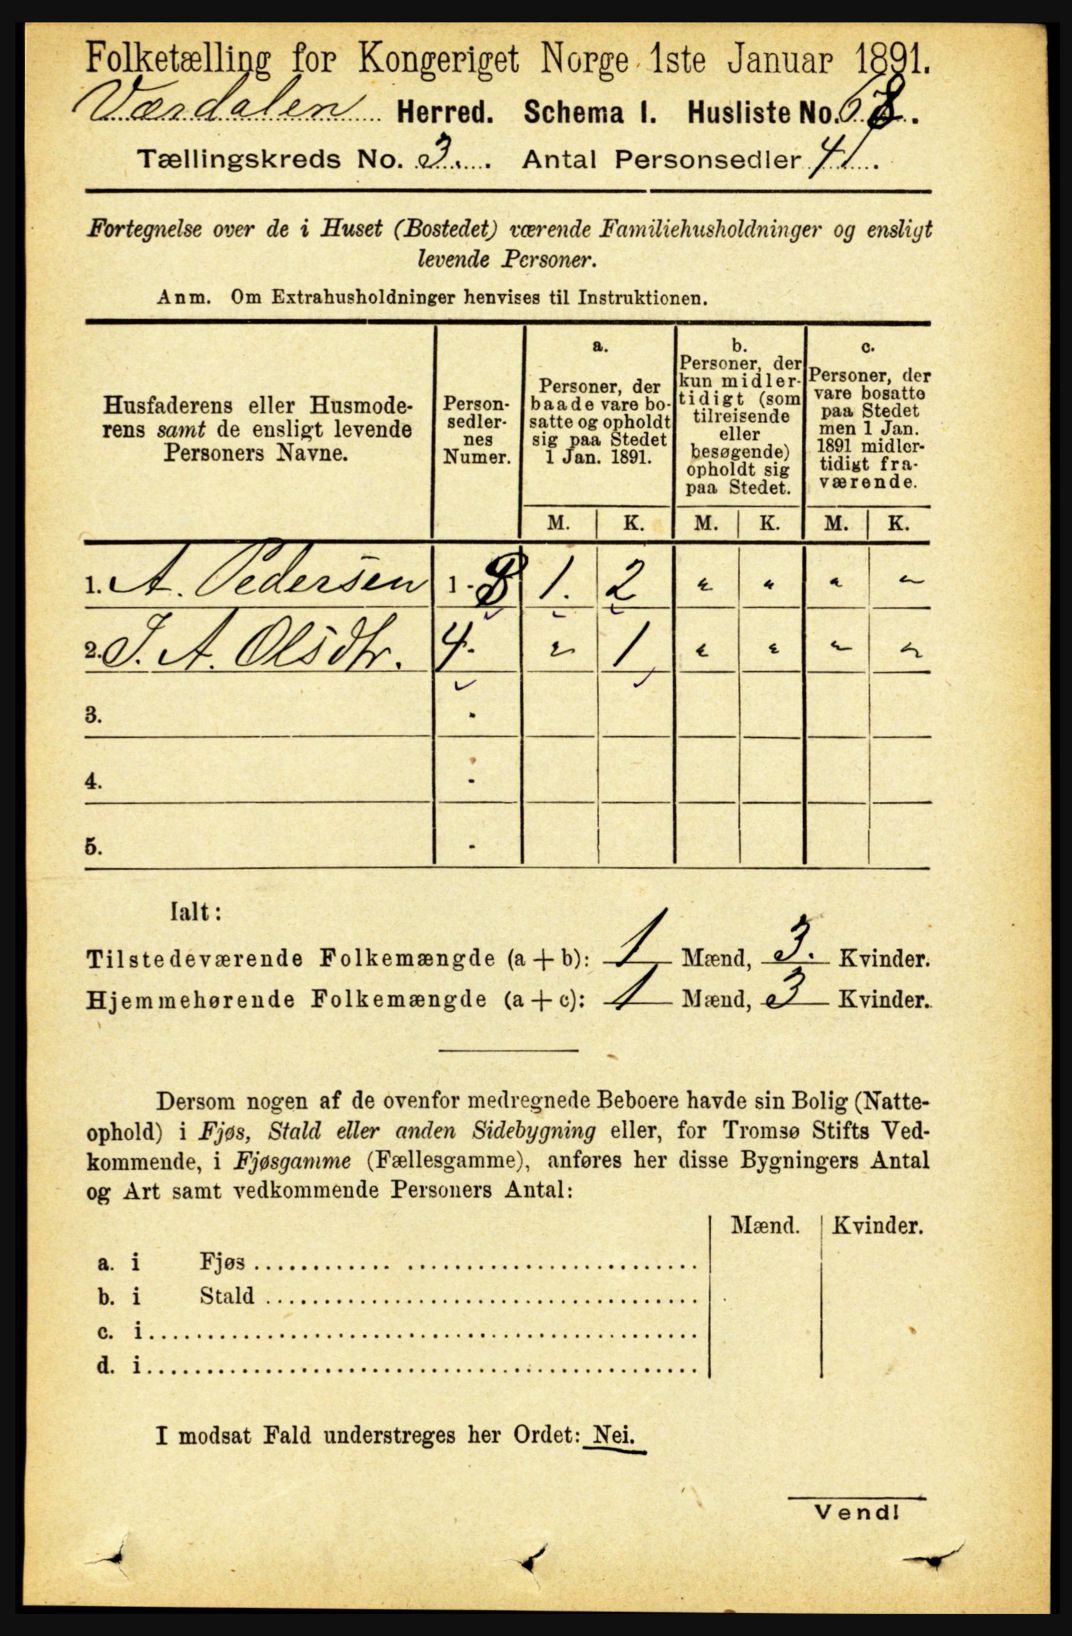 Folketælling for Kongeriget Norge 1ste Januar 1891.
Værdalen Herred. Schema I. Husliste No. 68.
Tællingskreds No. 3. Antal Personsedler 4.
Fortegnelse over de i Huset (Bostedet) værende Familiehusholdninger og ensligt
levende Personer.
Anm. Om Extrahusholdninger henvises til Instruktionen.
Husfaderens eller Husmode-
rens samt de ensligt levende
Personers Navne.
Person-
sedler-
nes
Numer.
a.
Personer, der
baade vare bo-
satte og opholdt
sig paa Stedet
1 Jan. 1891.
b.
Personer, der
kun midler-
tidigt (som
tilreisende
eller
besøgende)
opholdt sig
paa Stedet.
c.
Personer, der
vare bosatte
paa Stedet
men 1 Jan.
1891 midler-
tidigt fra-
værende.
M. K. M. K. M. K.
1. A. Pedersen 1 - 3 1. 2 " " " "
2. J. A. Olsdtr. 4 - " 1 " " " "
3. -
4. -
5. -
Ialt:
Tilstedeværende Folkemængde (a + b): 1 Mænd, 3. Kvinder.
Hjemmehørende Folkemængde (a + c): 1 Mænd, 3 Kvinder.
Dersom nogen af de ovenfor medregnede Beboere havde sin Bolig (Natte-
ophold) i Fjøs, Stald eller anden Sidebygning eller, for Tromsø Stifts Ved-
kommende, i Fjøsgamme (Fællesgamme), anføres her disse Bygningers Antal
og Art samt vedkommende Personers Antal:
Mænd. Kvinder.
a. i Fjøs
b. i Stald
c. i
d. i
I modsat Fald understreges her Ordet: Nei.
Vend!